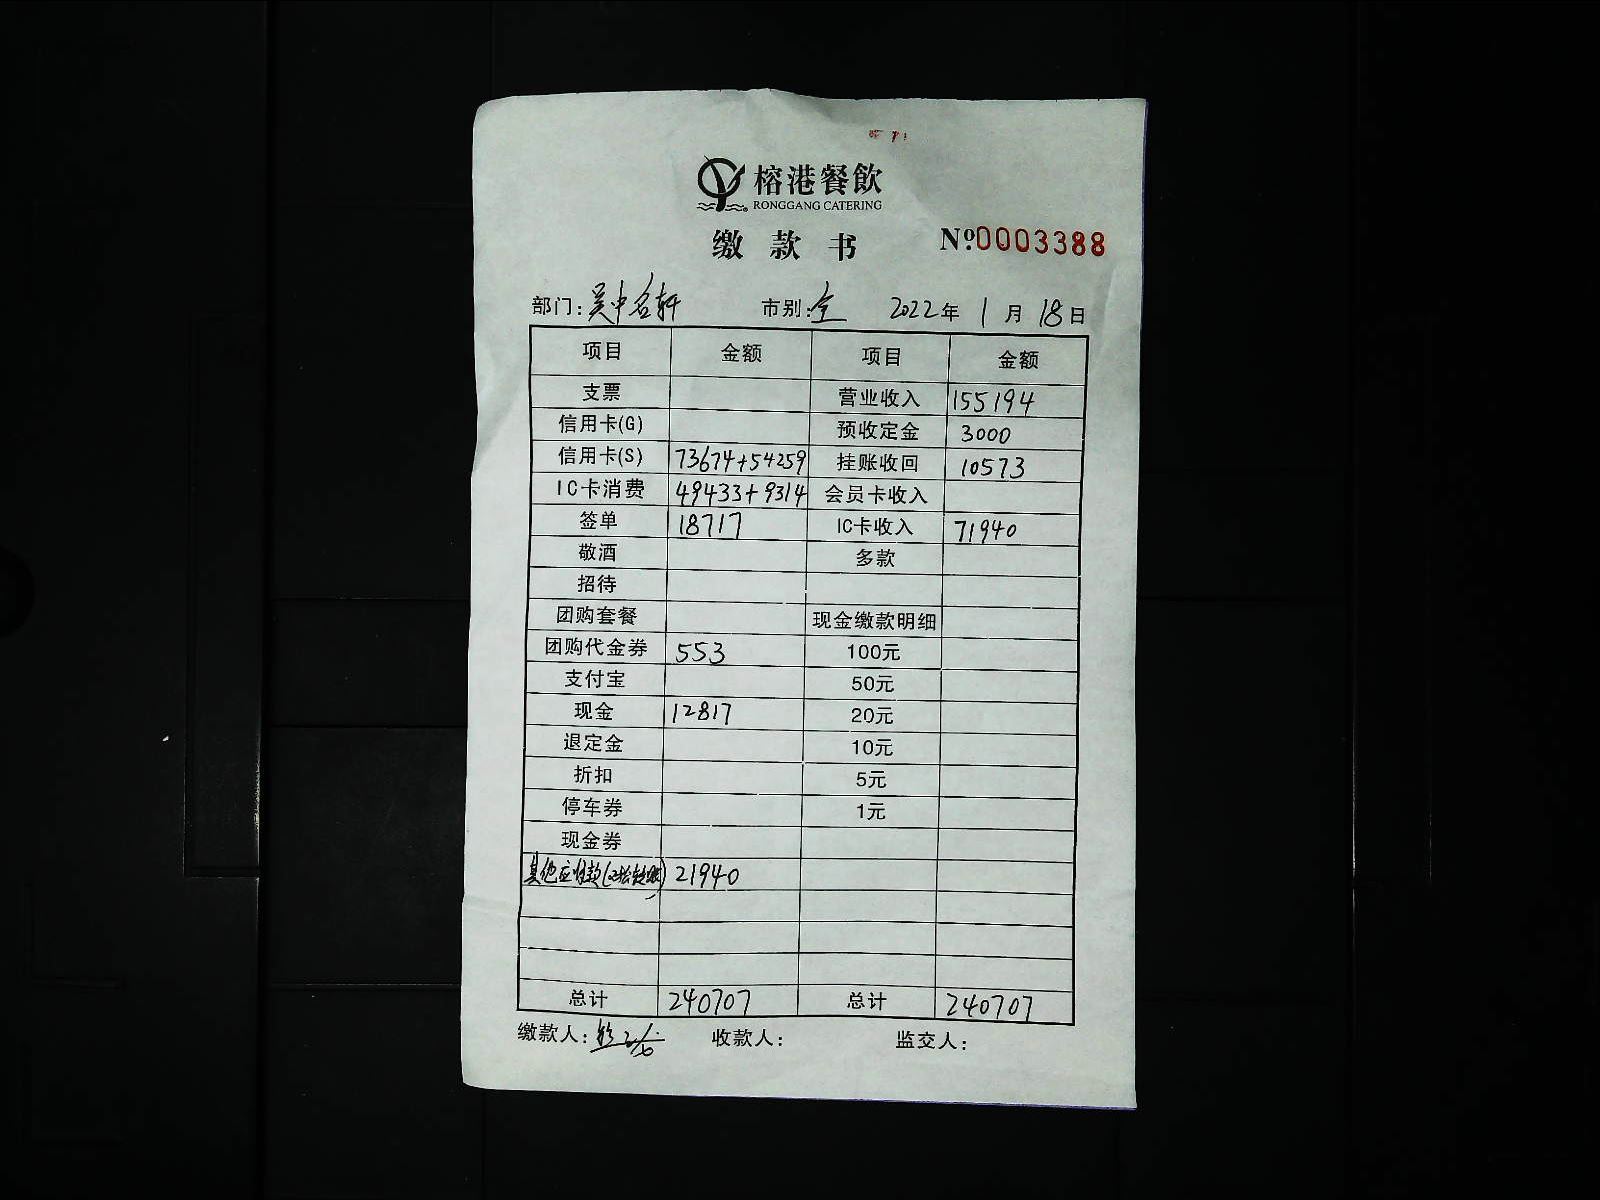 榕港餐飲
RONGGANG CATERING
缴款书 №0003388
部门:吴中名轩 市别:全 2022年1月18日
项目 金额 项目 金额
支票 营业收入 155194
信用卡(G) 预收定金 3000
信用卡(S) 73674+54259 挂账收回 10573
IC卡消费 49433+9314 会员卡收入
签单 18717 IC卡收入 71940
敬酒 多款
招待
团购套餐 现金缴款明细
团购代金券 553 100元
支付宝 50元
现金 12817 20元
退定金 10元
折扣 5元
停车券 1元
现金券
其他应收款 21940
总计 240707 总计 240707
缴款人: 收款人: 监交人: